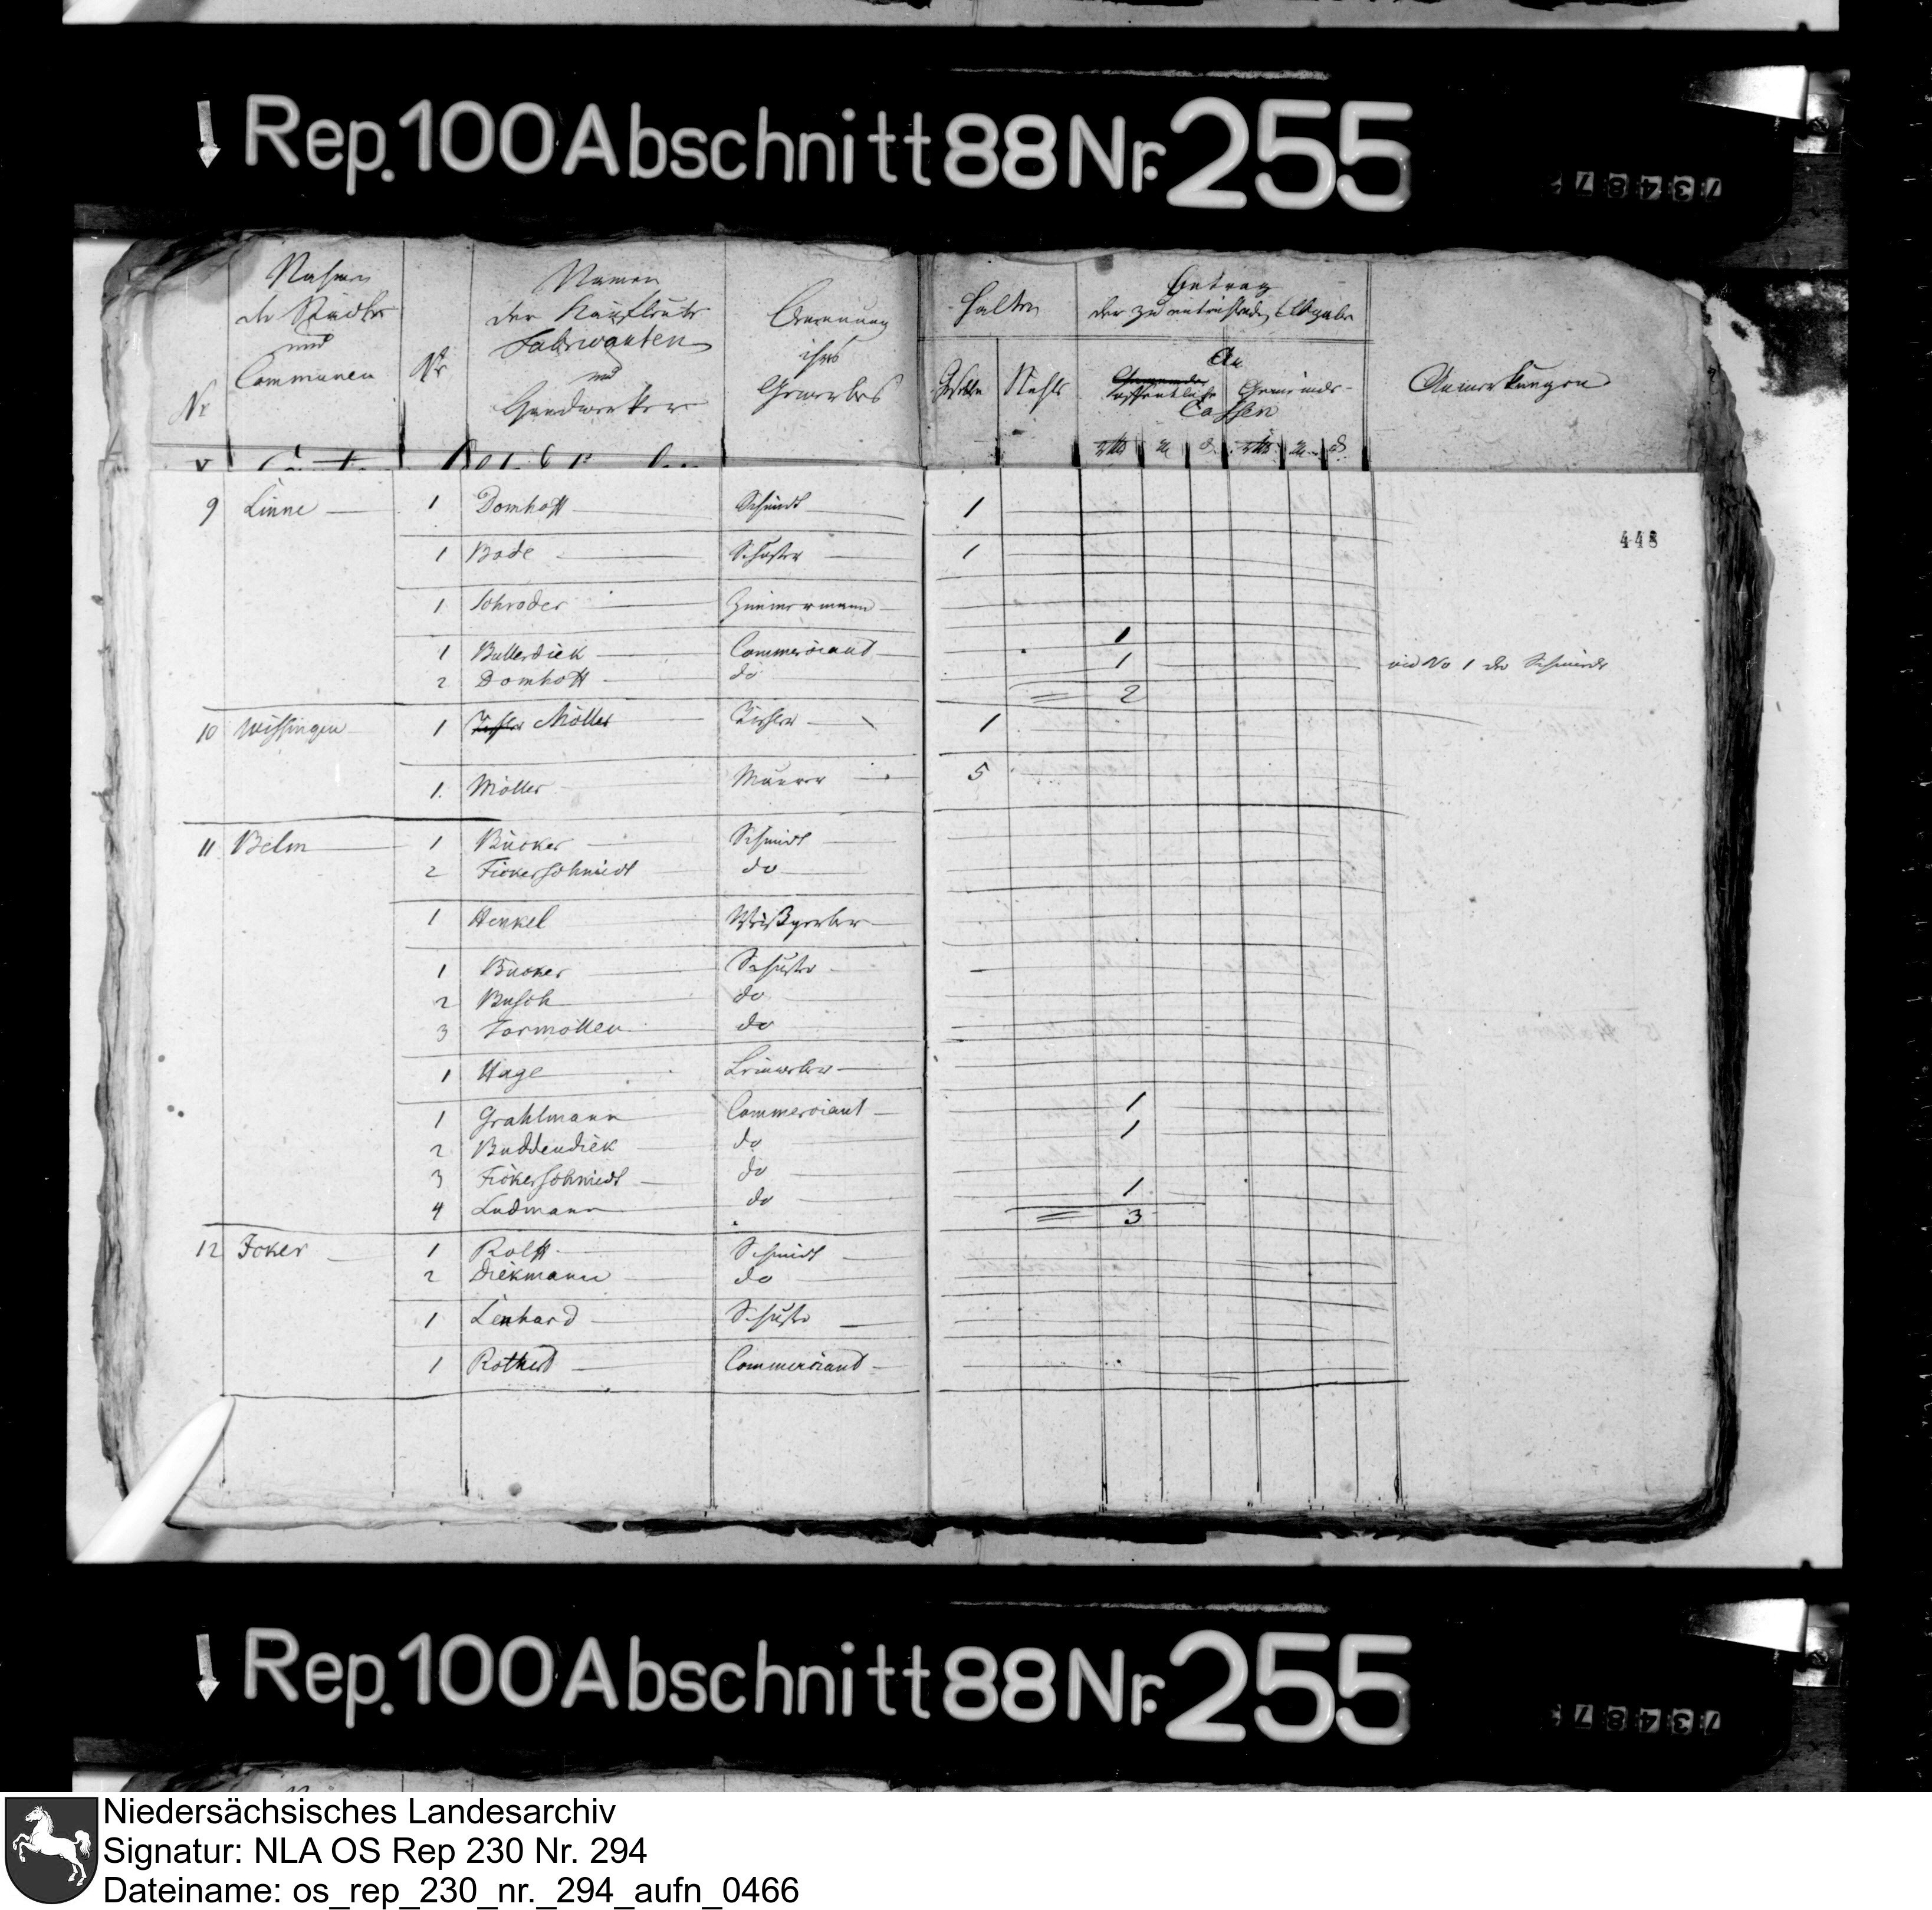 Rep. 100 Abschnitt 88 Nr. 255
Nr
Nahmen
der Städte
und
Communen
Nr
Namen
der Kaufleute
Fabricanten
und
Handwerker
Benennung
ihres
Gewerbes
Halten
Gesellen Stühle
Betrag
der zu entrichtenden Abgabe
An
öffentliche Gemeinde-
Cassen
Anmerkungen
448
9 Linne 1 Domhoff Schmidt 1
1 Bode Schuster 1
1 Schroder Zimmermann
1 Bullerdiek Commerciant 1
2 Domhoff do 1 vid No 1 der Schmiede
2
10 Wissingen 1 Möller Tischler 1
1. Möller Maurer 5
11 Belm 1 Bücker Schmidt
2 Fickerschmidt do
1 Henkel Weißgerber
1 Bücker Schuster
2 Busch do
3 Tormöllen do
1 Hage Leinweber
1 Grahlmann Commerciant 1
2 Buddendiek do 1
3 Fickerschmidt do
4 Ludmann do 1
3
12 Icker 1 Rolff Schmidt
2 Diekmann do
1 Lenhard Schuster
1 Rothert Commerciant
Rep. 100 Abschnitt 88 Nr. 255
Niedersächsisches Landesarchiv
Signatur: NLA OS Rep 230 Nr. 294
Dateiname: os_rep_230_nr._294_aufn_0466